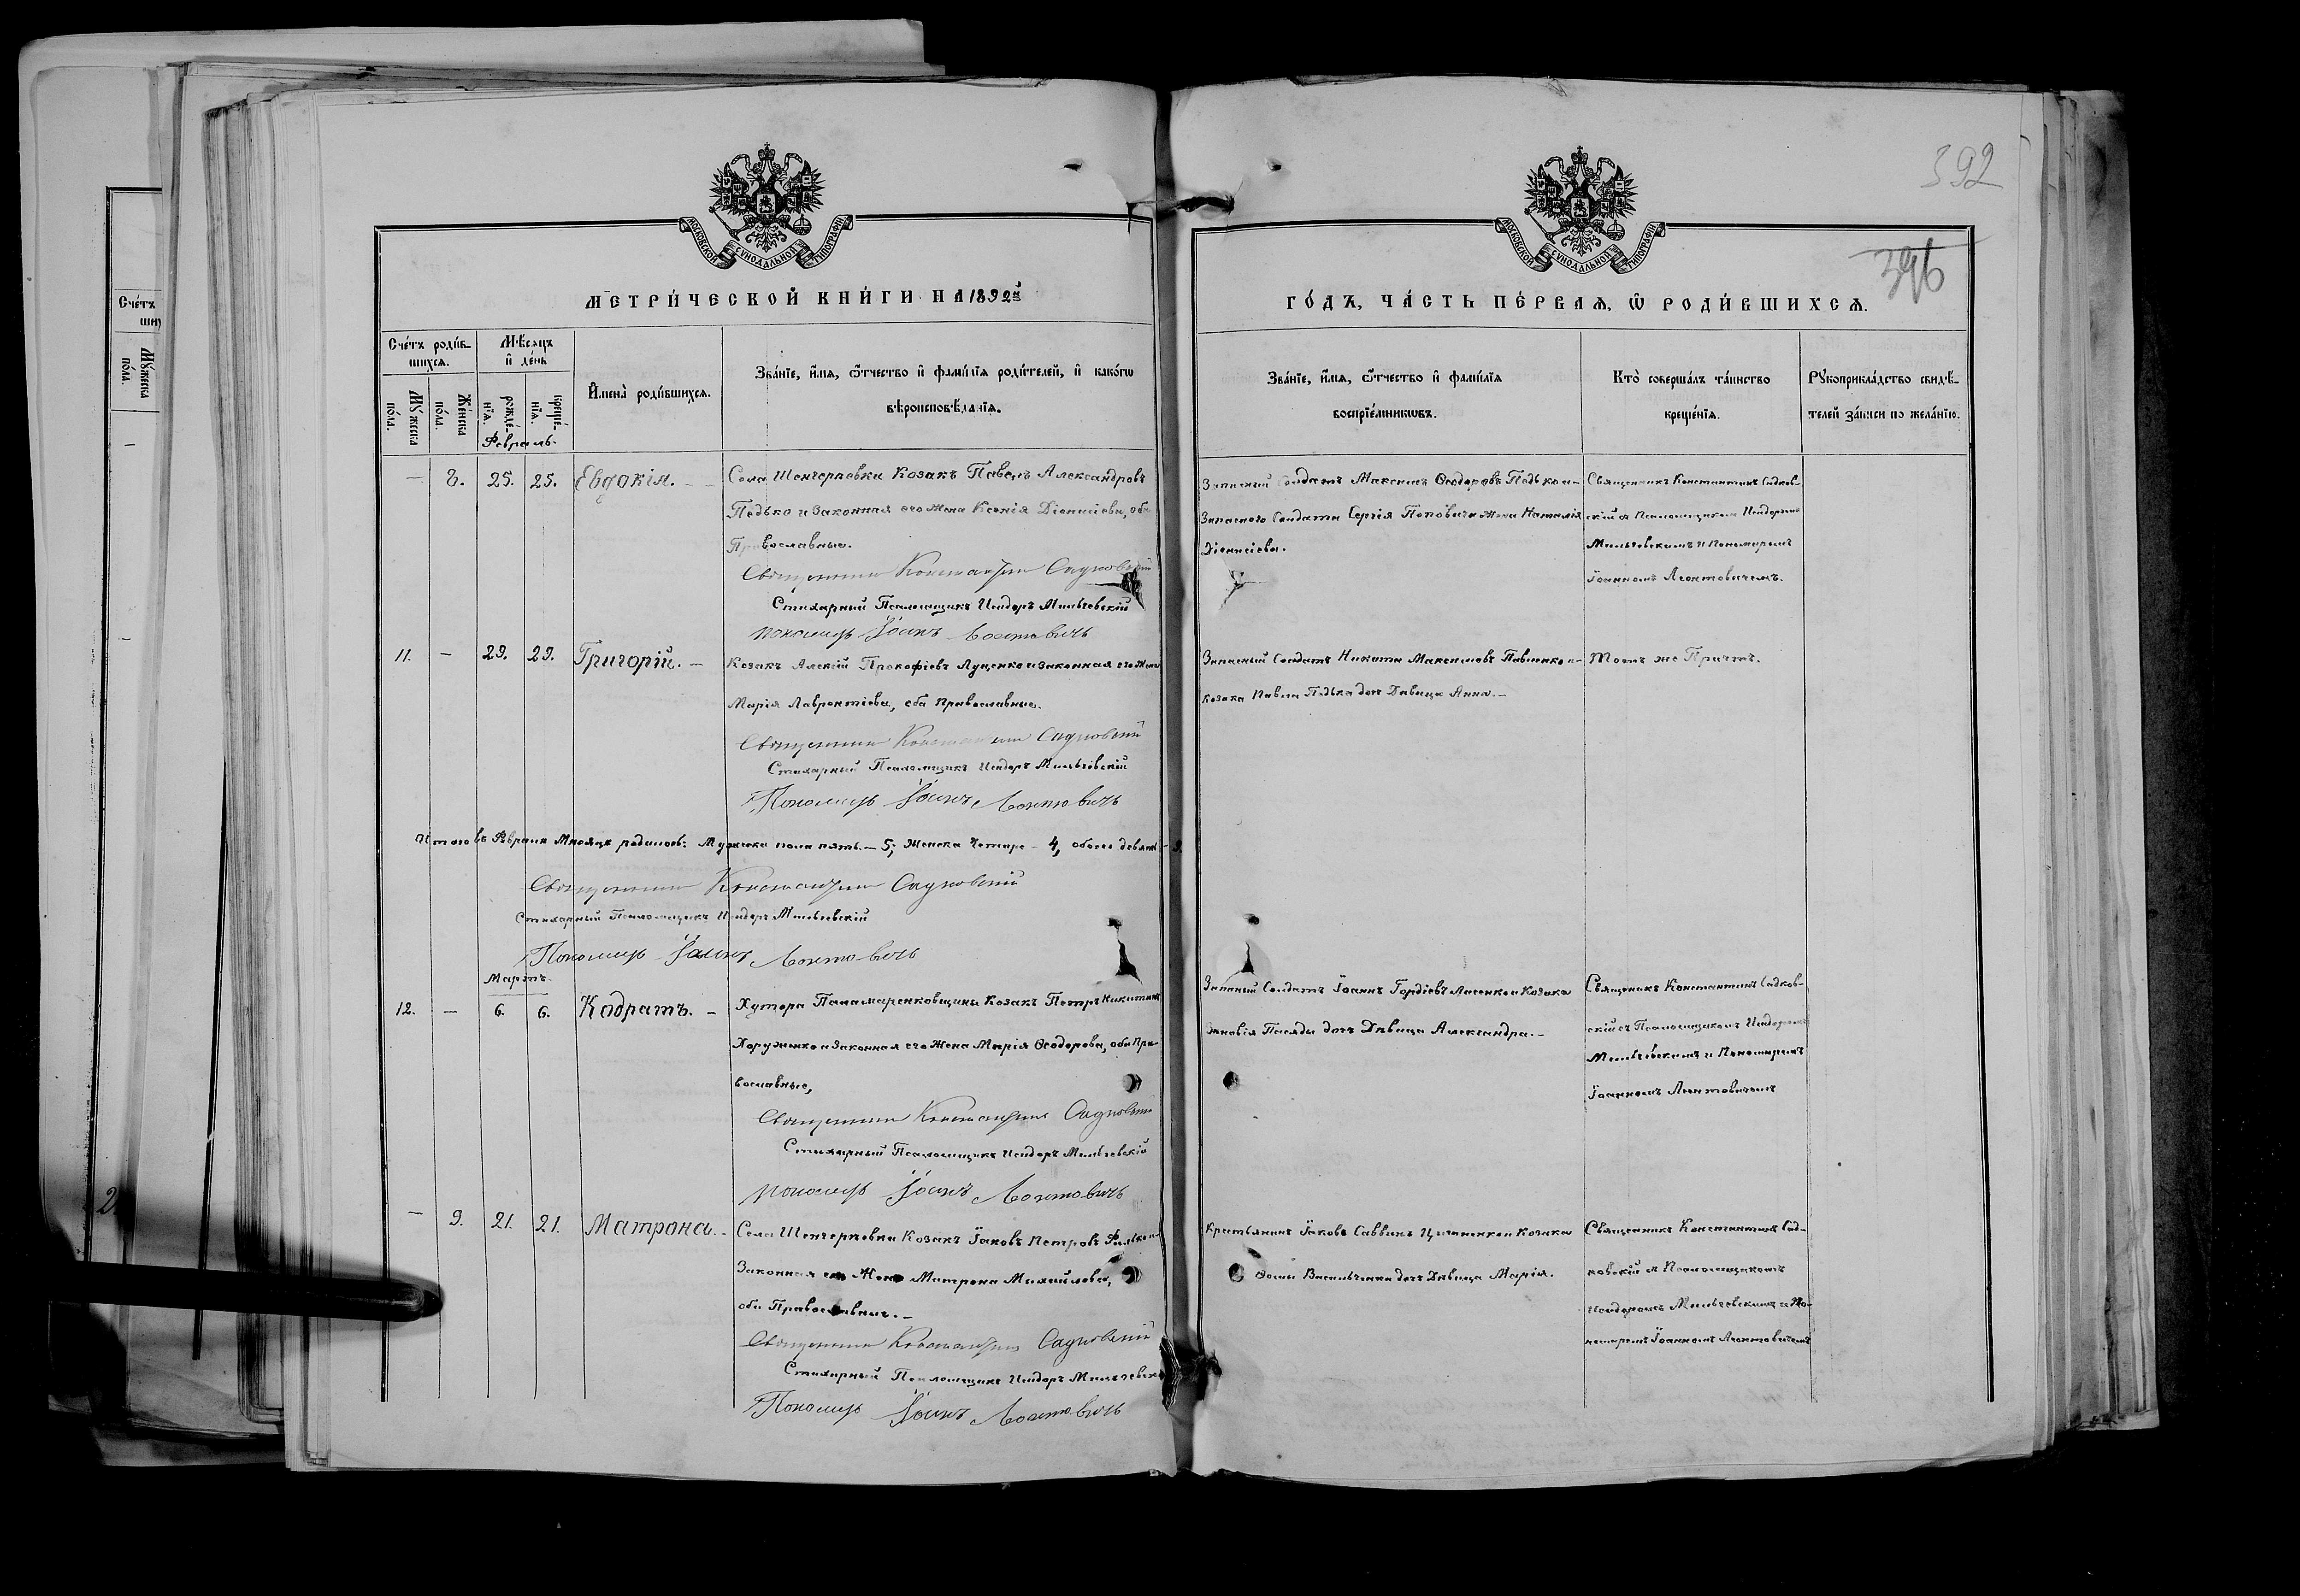 392
396
МОСКОВСКОЙ СѴНОДАЛЬНОЙ ТИПОГРАФІИ
МОСКОВСКОЙ СѴНОДАЛЬНОЙ ТИПОГРАФІИ
МЕТРИ́ЧЕСКОЙ КНИ́ГИ НА 1892й
ГО́ДЪ, ЧА́СТЬ ПЕ́РВАѦ, Ѿ РОДИ́ВШИХСѦ.
Сче́тъ роди́в-
шихсѧ.
Му́жеска по́ла.
Же́нска по́ла.
Мѣ́сѧцъ и҆ де́нь
рожде́-нїѧ.
креще́-нїѧ.
И҆мена̀ роди́вшихсѧ.
Зва́нїе, и҆́мѧ, ѻ҆́тчество и҆ фами́лїѧ роди́телей, и҆ како́гѡ
вѣроисповѣ́данїѧ.
Зва́нїе, и҆́мѧ, ѻ҆́тчество и҆ фами́лїѧ
воспрїе́мникѡвъ.
Кто̀ соверша́лъ та́инство
креще́нїѧ.
Рꙋкоприкла́дство свидѣ́-
телей за́писи по жела́нїю.
Февраль.
— 8. 25. 25. Евдокія. — Села Шенгеріевки Козакъ Павелъ Александровъ
Педько и Законная его Жена Ксенія Діонисіева, оба
Православные.
Священникъ Константинъ Садковскій
Стихарный Псаломщикъ Исидоръ Мильчевскій
Пономарь Іоанъ Леонтовичь
Запасный Солдатъ Максимъ Ѳеодоровъ Педько и-
Запаснаго Солдата Сергія Поповича жена Наталія
Діонисіева.
Священникъ Константинъ Садков-
скій съ Псаломщикомъ Исидоромъ
Мильчевскимъ и Пономаремъ
Іоанномъ Леонтовичемъ.
11. — 29. 29. Григорій. — Козакъ Алексій Прокофіевъ Луценко и Законная его Жена
Марія Лаврентіева, оба Православные.
Священникъ Константинъ Садковскій
Стихарный Псаломщикъ Исидоръ Мильчевскій
Пономарь Іоанъ Леонтовичь
Запасный Солдатъ Никита Максимовъ Павленко и-
Козака Павла Педька дочь Дѣвица Анна.—
Тотъ же Причтъ.
Итого въ Февралѣ Мѣсяцѣ родилось: Мужеска пола пять.— 5; Женска Четыре — 4, обоего девять — 9.
Священникъ Константинъ Садковскій
Стихарный Псаломщикъ Исидоръ Мильчевскій
Пономарь Іоанъ Леонтовичь
Мартъ.
12. — 6. 6. Кодратъ. — Хутора Панамаренковщины Козакъ Петръ Никитинъ
Хоруженко и Законная его Жена Марія Ѳеодорова, оба Пра-
вославные,
Священникъ Константинъ Садковскій
Стихарный Псаломщикъ Исидоръ Мильчевскій
Пономарь Іоанъ Леонтовичь
Запасный Солдатъ Іоаннъ Гордіевъ Лисенко и Козака
Зиновія дочь Дѣвица Александра.—
Священикъ Константинъ Садков-
скій съ Псаломщикомъ Исидоромъ
Мильчевскимъ и Пономаремъ
Іоанномъ Леонтовичемъ
— 9. 21. 21. Матрона. — Села Шенгеріевки Козакъ Іаковъ Петровъ
Законная его Жена Матрона Михайлова,
оба Православные.—
Священникъ Константинъ Садковскій
Стихарный Псаломщикъ Исидоръ Мильчевскій
Пономарь Іоанъ Леонтовичь
Крестьянинъ Іаковъ Саввинъ Цыганенко и Козака
Ѳомы Васильченка дочь Дѣвица Марія.
Священникъ Константинъ Сад-
ковскій съ Псаломщикомъ
Исидоромъ Мильчевскимъ и По-
номаремъ Іоанномъ Леонтовичемъ